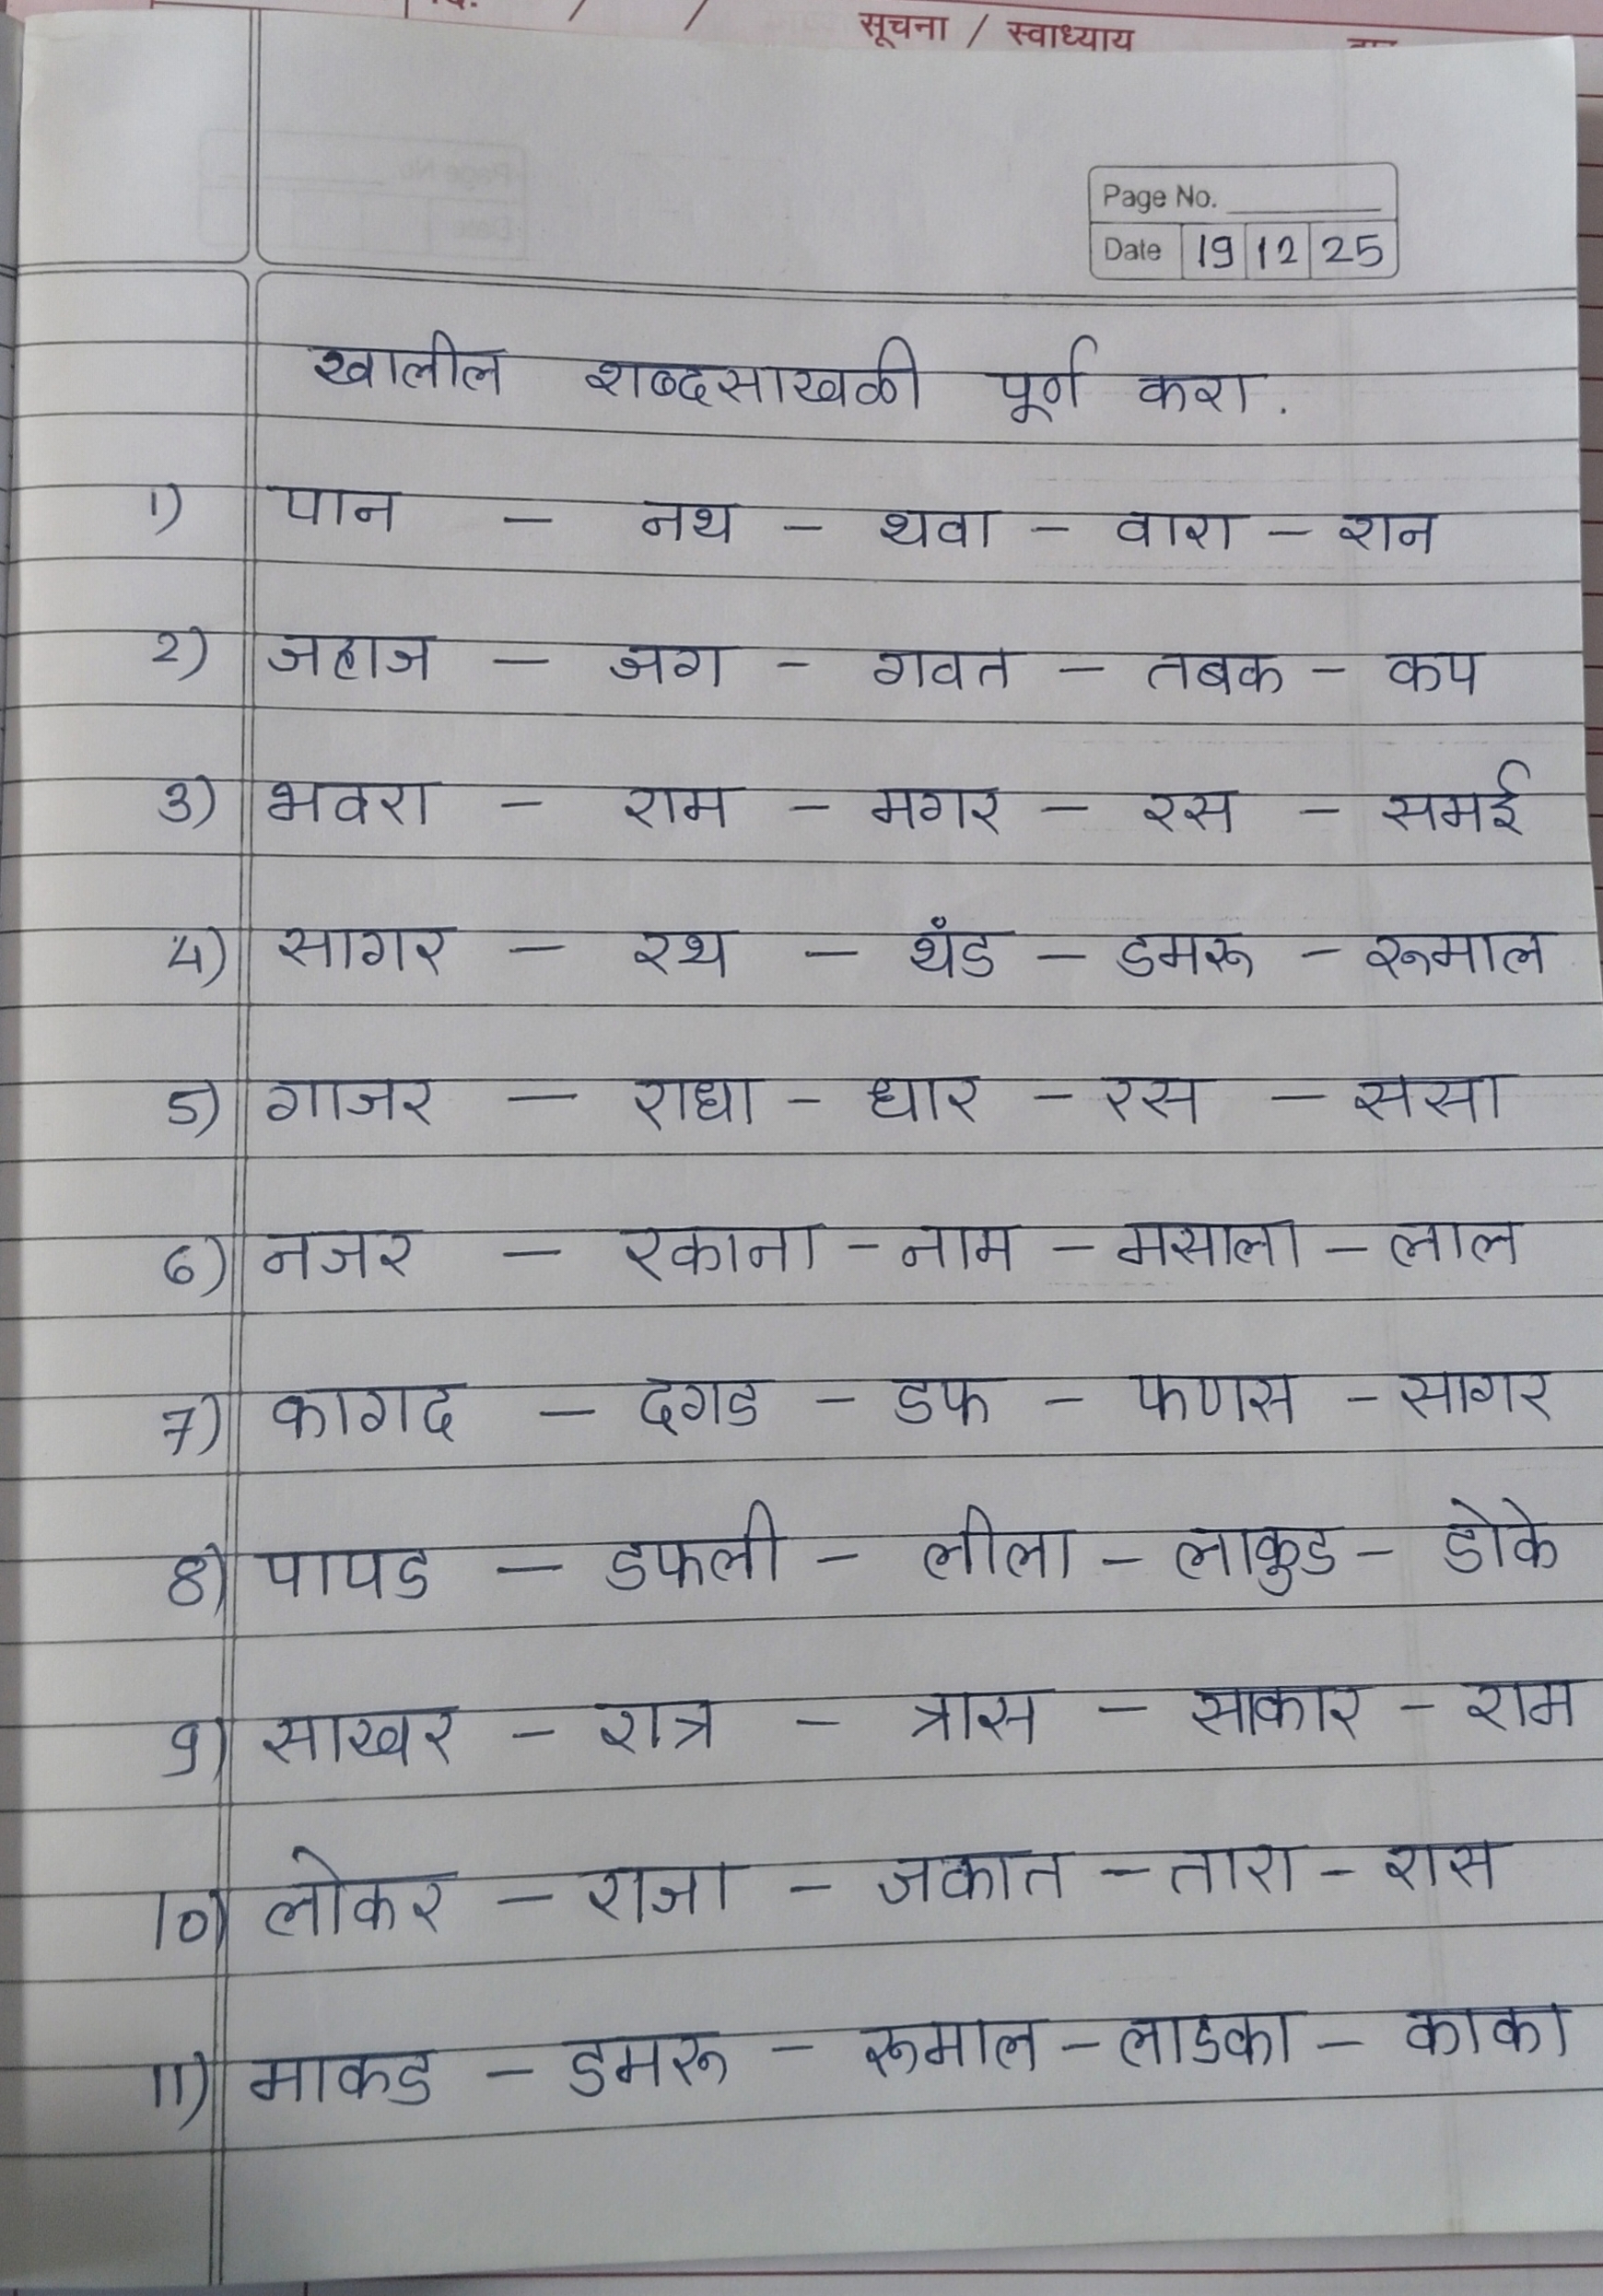 सूचना / स्वाध्याय
Page No.
Date 19 12 25
खालील शब्दसाखळी पूर्ण करा.
1) पान - नथ - थवा - वारा - रान
2) जहाज - जग - गवत - तबक - कप
3) भवरा - राम - मगर - रस - समई
4) सागर - रथ - थंड - डमरू - रूमाल
5) गाजर - राधा - धार - रस - ससा
6) नजर - रकाना - नाम - मसाला - लाल
7) कागद - दगड - डफ - फणस - सागर
8) पापड - डफली - लीला - लाकुड - डोके
9) साखर - रात्र - त्रास - साकार - राम
10) लोकर - राजा - जकात - तारा - रास
11) माकड - डमरू - रूमाल - लाडका - काका